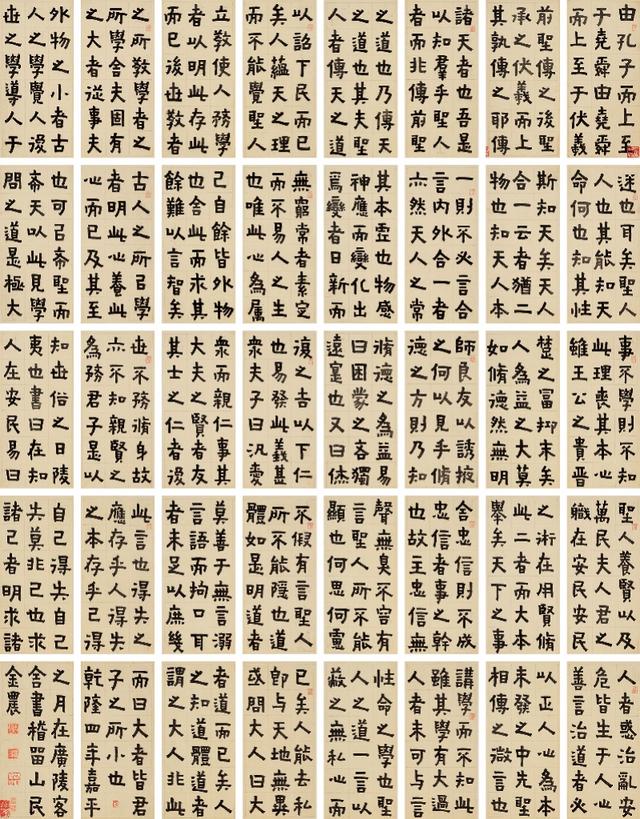 由孔子而上至
于堯舜由堯舜
而上至于伏羲
前聖傳之後聖
承之伏羲而上
其孰傳之耶傳
諸天者也吾是
以知羣乎前聖
者而非傳前聖
之道也乃傳天
之道也其天聖
人者傳天之道
以詔下民而已
矣人蘊天之理
而不能覺聖人
立教使人務學
者以明此存此
而已後世教者
之所教學者之
所學舍夫固有
之大者從事夫
外物之小者古
人之學覺人後
世之學導人于
迷也
人也其能知天
命何也知其性
斯知天矣天人
合一云者猶二
物也知天人本
一則不必言合
言內外合一者
亦然天人之常
其本虛也物感
神應而變化出
焉變者日新而
無窮常者素定
而不易人之生
也唯此心為屬
己自餘皆外物
也舍此而求其
餘難以言智矣
古人之所㠯學
者明此心養此
心而已及其至
也可㠯齋聖而
齋天以此見學
問之道是極大
事不學則不知
此理喪其本心
雖王公之貴晉
楚之富抑末矣
人為益之大莫
如脩德然無明
師良友以誘掖
之何以見乎脩
德之方則乃
脩德之為益易
曰困蒙之吝獨
遠實也又曰休
復之吉以下仁
也易發此義甚
衆夫子曰汎愛
衆而親仁事其
大夫之賢者友
其士之仁者後
世不務脩身故
亦不知親賢之
為務君子是以
知世俗之日陵
夷也書曰在知
人在安民易曰
聖人養賢以及
萬民夫人君之
職在安民安民
之術在用賢脩
此二者而天下
舉矣天下之事
舍忠信則不成
忠信者事之幹
也故主忠信無
聲無臭不容有
言聖人所不能
顯也何思何慮
不假有言聖人
所不能隱也道
體如是明道者
莫善于無言溺
言語而拘口耳
者未足以庶幾
此言也得失之
應存乎人得失
之本存乎己得
自己得失自己
失莫非己也求
諸己者明求諸
人者惑治亂安
危皆生于人心
善言治道者必
以正人心為本
未發之中先聖
相傳之微言也
講學而不知此
雖其學有大過
人者未可與言
性命之學也安
人之道一言以
蔽之無私心而
已矣人能去私
即與天地無異
或問大人曰大
者道而已矣人
之知道體道者
謂之大人非此
而曰大者皆君
子之所小也
乾隆四年嘉平
之月在廣陵客
舍書稽留山民
金農